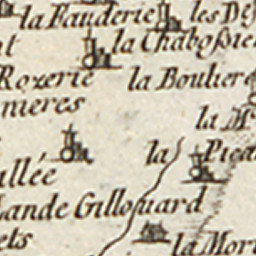 la Fauderie
les De
la Chaboßie
Rozerie
la Bouliere
nieres
la M
la
allée
Lande Gillouard
ets
la Mor